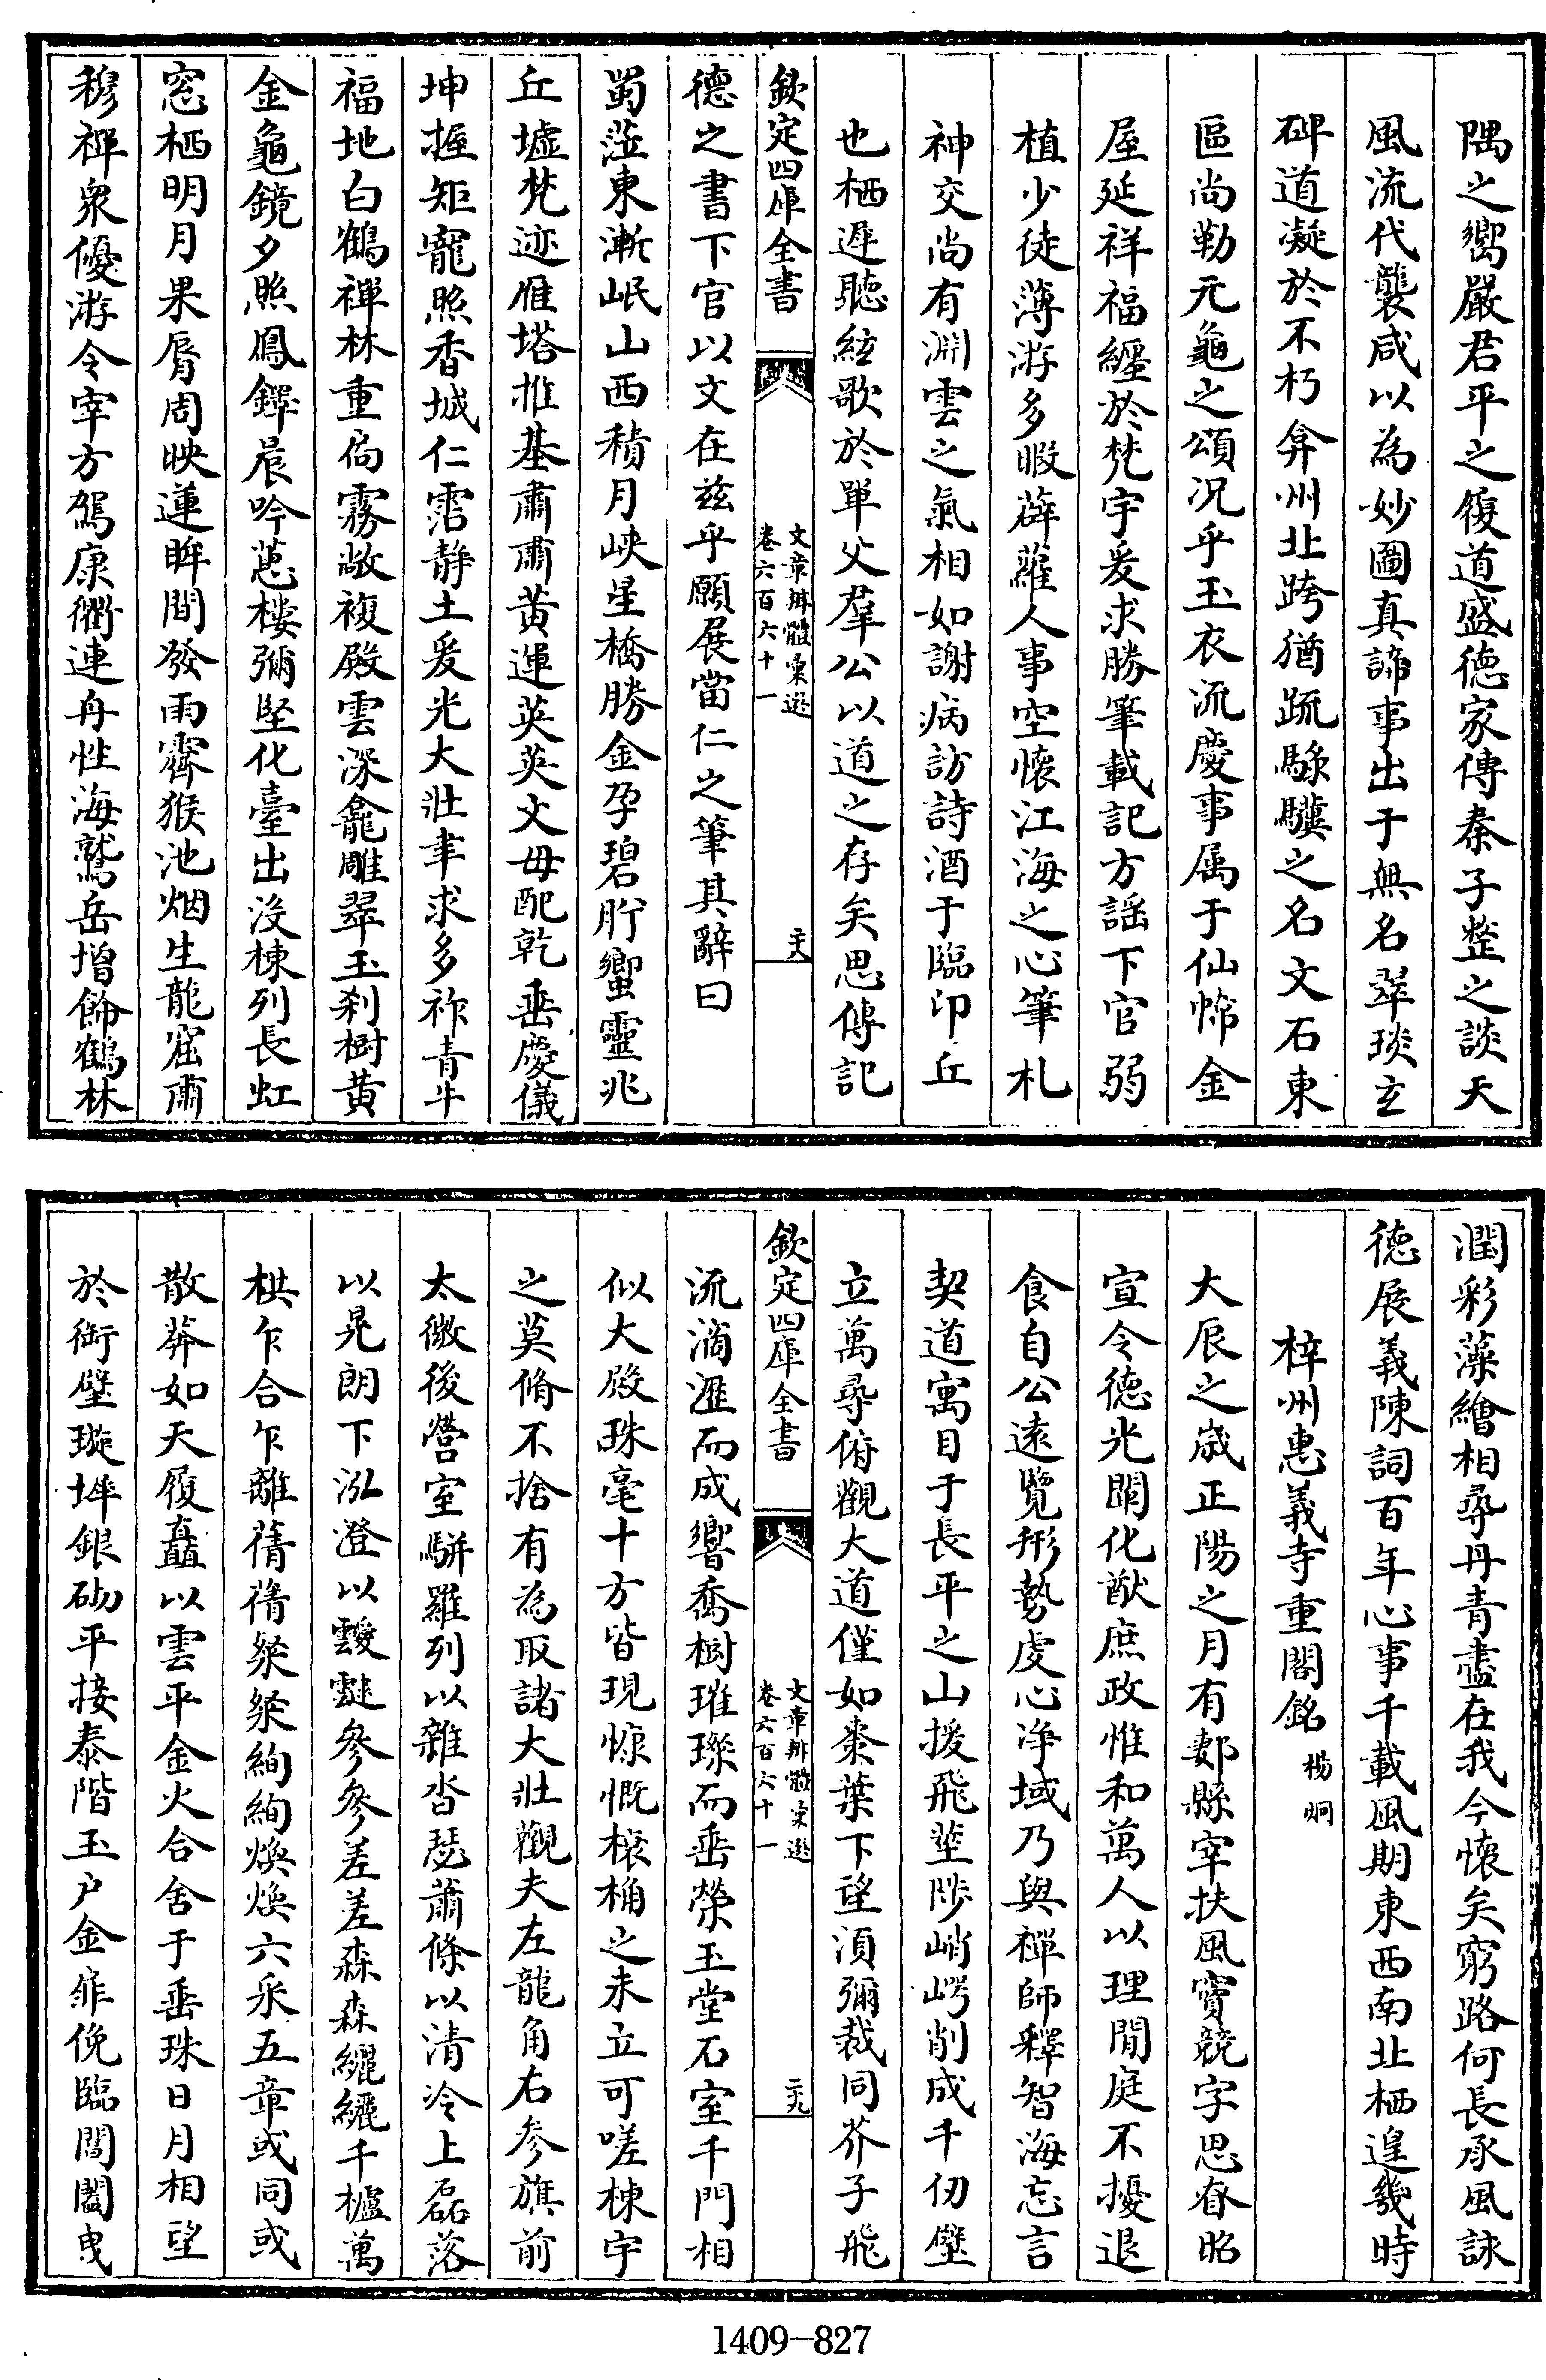 隅之嚮嚴君平之復道盛德家傳秦子整之談天
風流代襲咸以為妙圖真諦事出于無名翠琰玄
碑道凝於不朽弇州北跨猶疏騄驥之名文石東
區尚勒元龜之頌况乎玉衣流慶事属于仙㡗金
屋延祥福纏於梵宇爰求勝筆載記方謡下官弱
植少徒薄游多暇薜蘿人事空懷江海之心筆札
神交尚有淵雲之氣相如謝病訪詩酒于臨卬丘
也栖遲聽絃歌於單父羣公以道之存矣思傳記
欽定四庫全書
文章辨體彙選
卷六百六十一
二十八
德之書下官以文在兹乎願展當仁之筆其辭曰
蜀蒞東漸岷山西積月峽星橋勝金孕碧肹蠁靈兆
丘墟梵迹雁塔推基肅肅黄運英英文母配乾垂慶儀
坤握矩寵照香城仁霑静土爰光大壯聿求多祚青牛
福地白鶴禪林重扃霧敞複殿雲深龕雕翠玉刹樹黄
金龜鏡夕照鳳鐸晨吟蕙樓彌堅化臺出没棟列長虹
窓栖明月果脣周映蓮眸間發雨霽猴池烟生龍窟肅
穆禪衆優游令宰方駕康衢連舟性海鷲岳增飾鶴林
潤彩藻繪相尋丹青盡在我今懷矣窮路何長承風詠
德展義陳詞百年心事千載風期東西南北栖遑幾時
梓州惠義寺重閣銘 楊烱
大辰之歲正陽之月有郪縣宰扶風竇兢字思眘昭
宣令德光闡化猷庶政惟和萬人以理閒庭不擾退
食自公遠覽形勢虔心净域乃與禪師釋智海忘言
契道寓目于長平之山援飛莖陟峭崿削成千仞壁
立萬尋俯觀大道僅如棗葉下望湏彌裁同芥子飛
欽定四庫全書
文章辨體彙選
卷六百六十一
二十九
流滴瀝而成響喬樹璀璨而垂榮玉堂石室千門相
似大殿珠毫十方皆現慷慨榱桷之未立可嗟棟宇
之莫脩不捨有為取諸大壯觀夫左龍角右参旗前
太微後營室駢羅列以雜沓瑟蕭條以清冷上磊落
以晃朗下泓澄以靉靆參參差差森森纚纚千櫨萬
栱乍合乍離蒨蒨粲粲絢絢煥煥六采五章或同或
散莽如天履矗以雲平金火合舍于垂珠日月相望
於銜璧璇坪銀砌平接泰階玉户金扉俛臨閶闔曳
1409-827